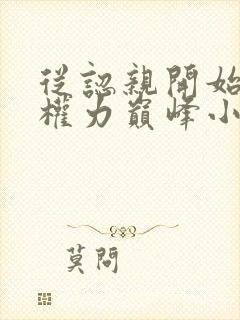 從認親開始
權力巔峰小
莫問